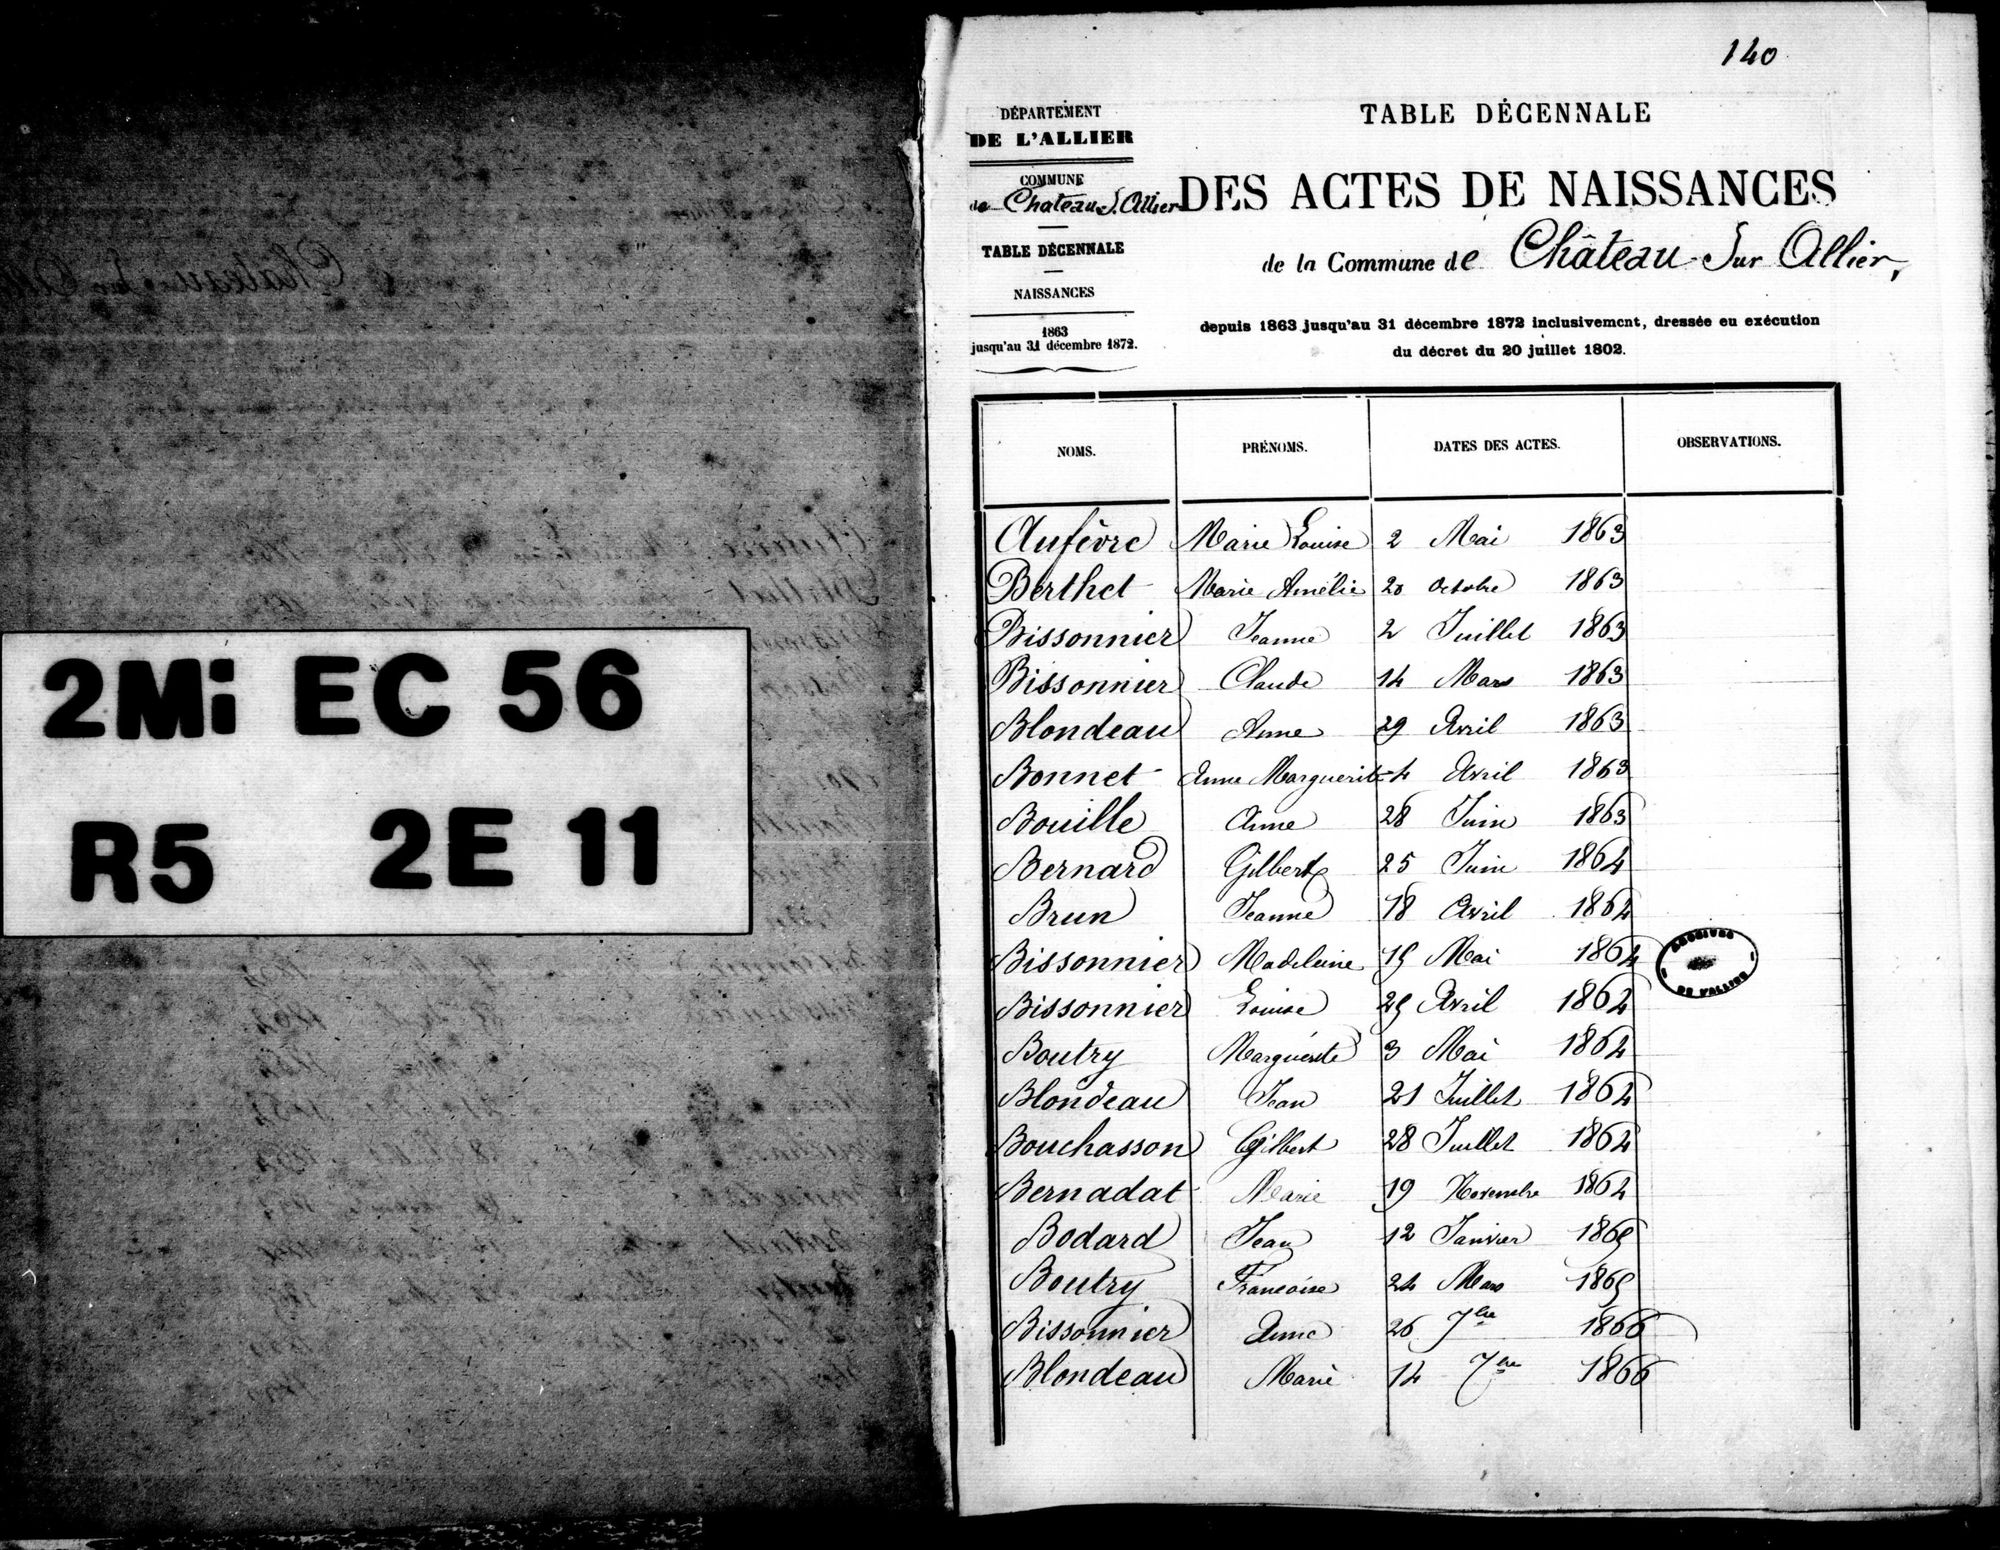 2Mi EC 56
R5 2E 11
140
DÉPARTEMENT
DE L'ALLIER
COMMUNE
de Chateau s. Allier
TABLE DÉCENNALE
NAISSANCES
1863
jusqu'au 31 décembre 1872.
TABLE DÉCENNALE
DES ACTES DE NAISSANCES
de la Commune de Château sur Allier,
depuis 1863 jusqu'au 31 décembre 1872 inclusivement, dressée eu exécution
du décret du 20 juillet 1802.
NOMS. PRÉNOMS. DATES DES ACTES. OBSERVATIONS.
Aufèvre Marie Louise 2 Mai 1863
Berthet Marie Amélie 20 Octobre 1863
Bissonnier Jeanne 2 Juillet 1863
Bissonnier Claude 14 Mars 1863
Blondeau Anne 29 Avril 1863
Bonnet Anne Marguerite 4 Avril 1863
Bouille Anne 28 Juin 1863
Bernard Gilbert 25 Juin 1864
Brun Jeanne 18 Avril 1864
Bissonnier Madeleine 15 Mai 1864
ARCHIVES
DE L'ALLIER
Bissonnier Louise 25 Avril 1864
Boutry Marguérite 3 Mai 1864
Blondeau Jean 21 Juillet 1864
Bouchasson Gilbert 28 Juillet 1864
Bernadat Marie 19 Novembre 1864
Bodard Jean 12 Janvier 1865
Boutry Francoise 24 Mars 1865
Bissonnier Anne 26 7bre 1866
Blondeau Marie 14 7bre 1866